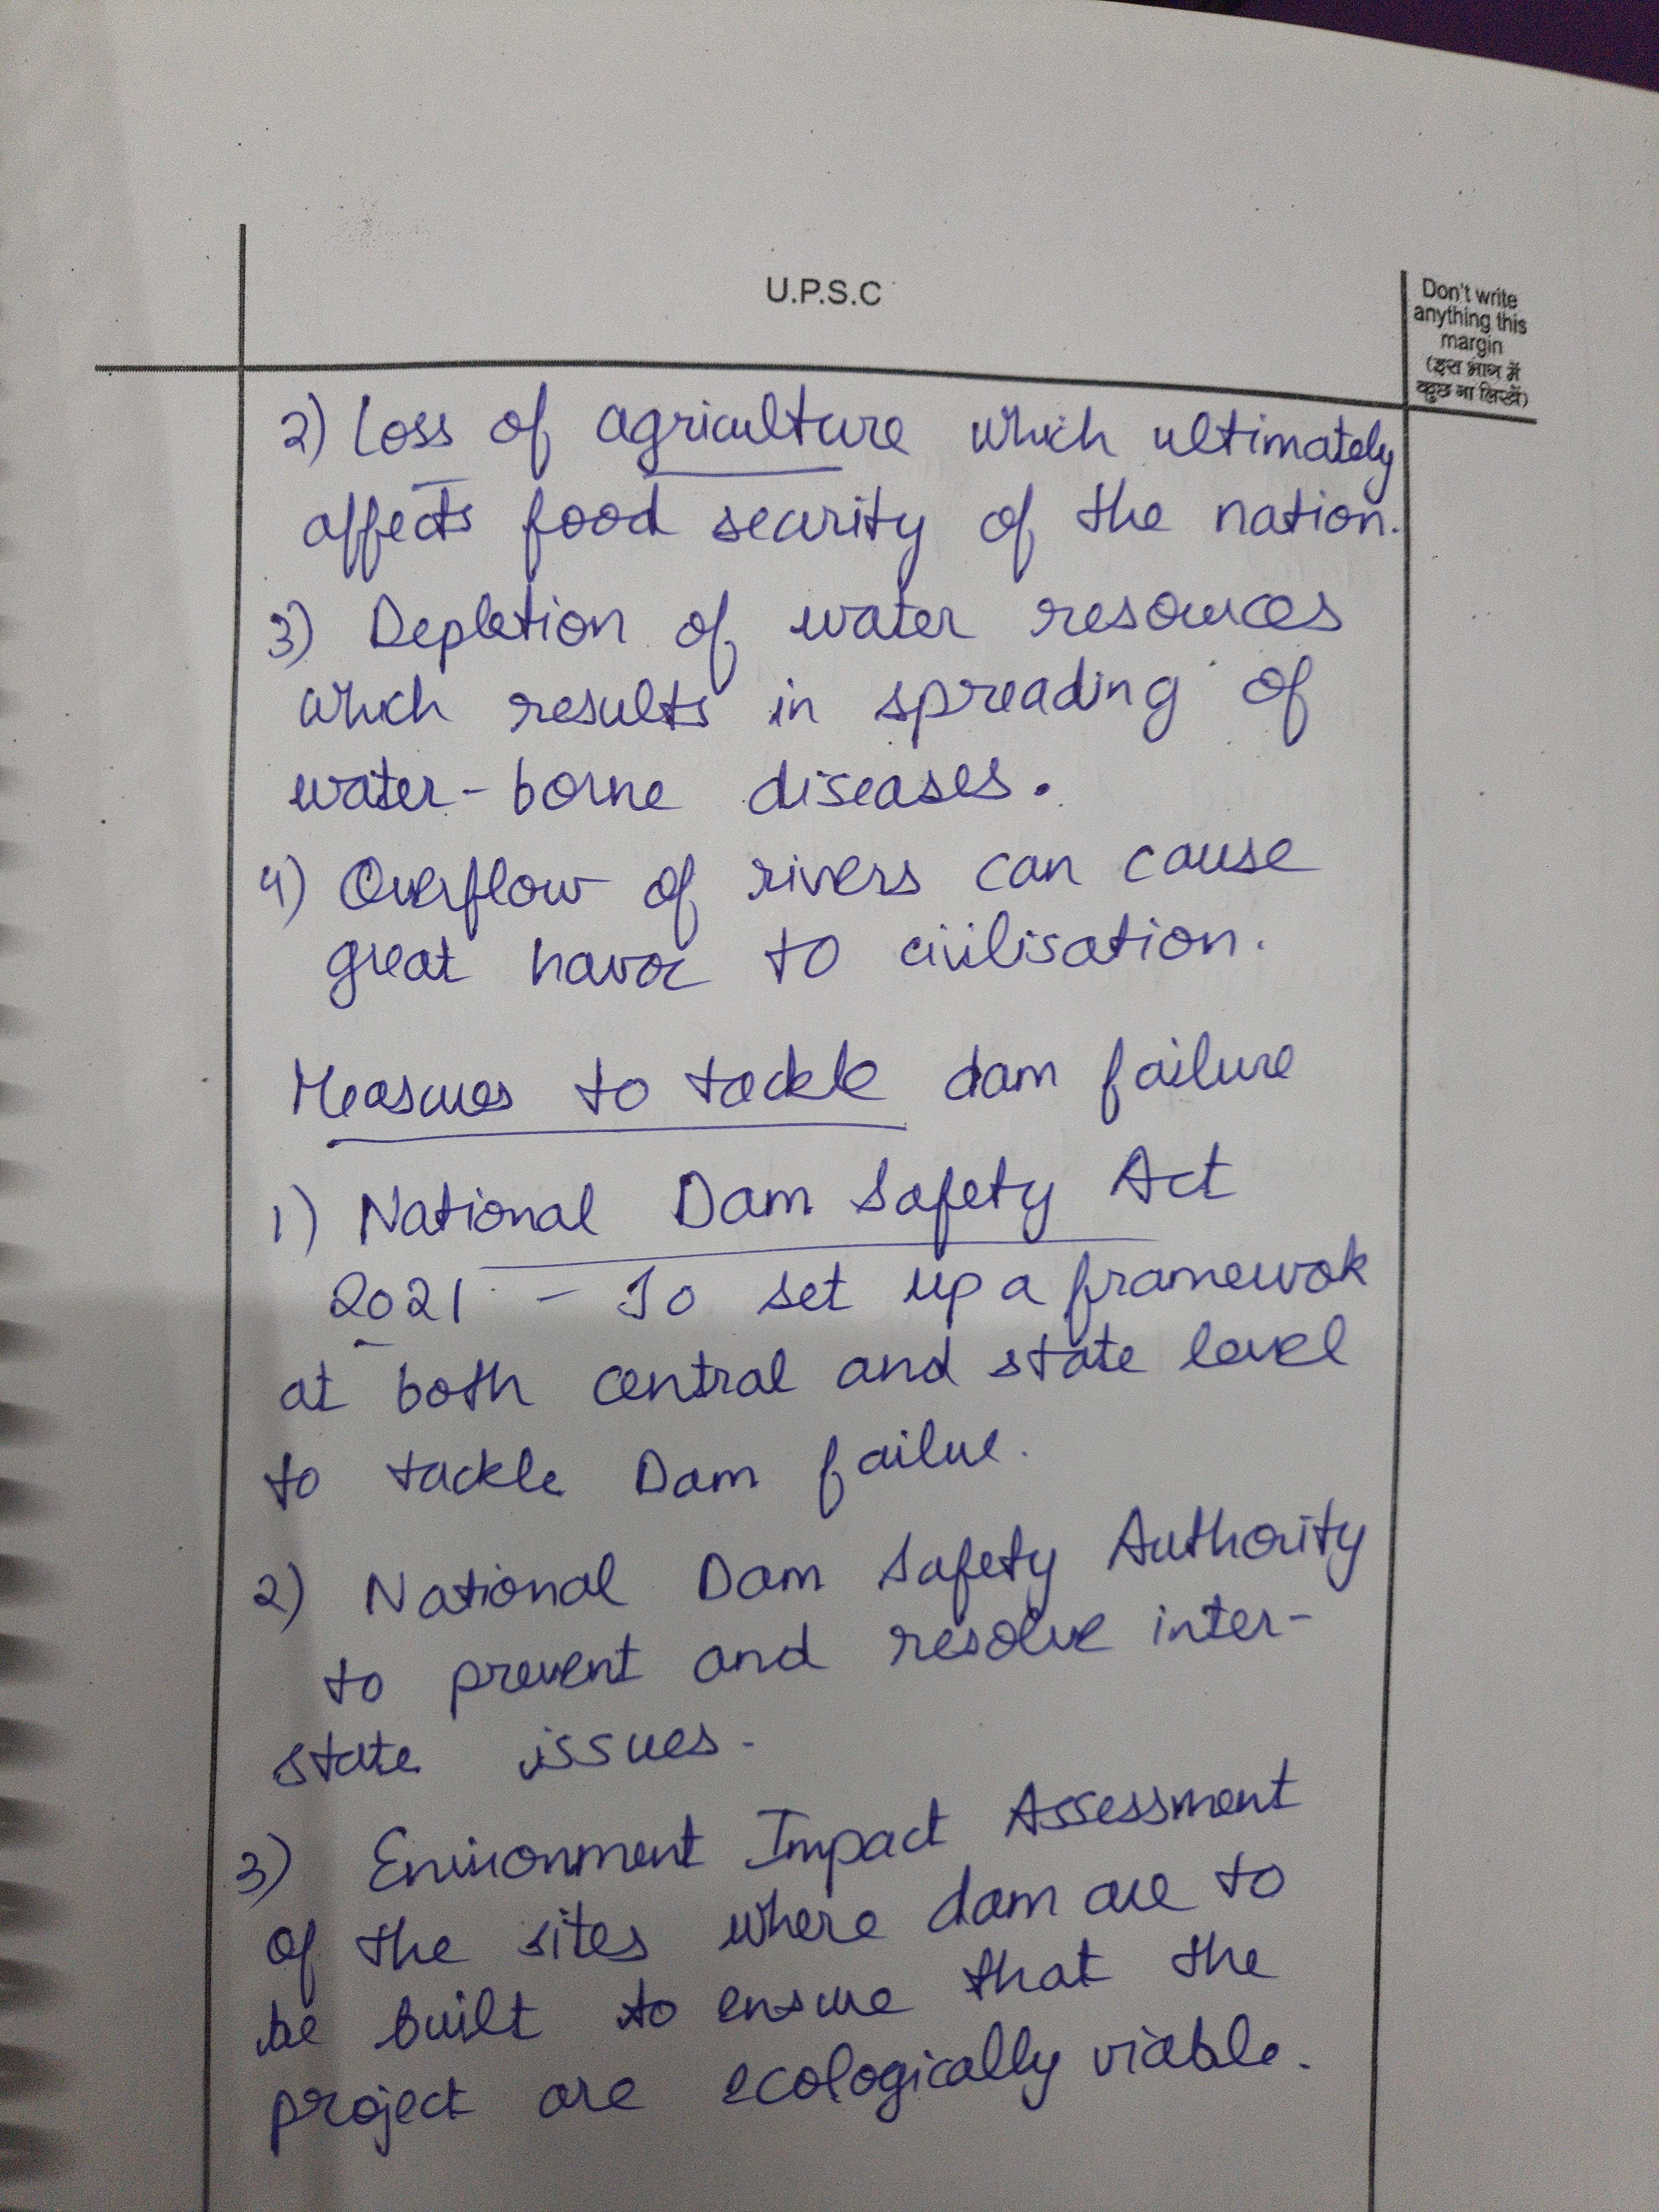 U.P.S.C
Don't write
anything this
margin
(इस भाग में
कुछ ना लिखें)
2) Loss of agriculture which ultimately
affects food security of the nation.
3) Depletion of water resources
which results in spreading of
water-borne diseases.
4) Overflow of rivers can cause
great havoc to civilisation.
Measures to tackle dam failure
1) National Dam Safety Act
2021 - To set up a framewok
at both central and state level
to tackle Dam failue.
2) National Dam Safety Authority
to prevent and resolve inter-
state issues.
3) Environment Impact Assessment
of the sites where dam are to
be built to ensure that the
project are ecologically viable.